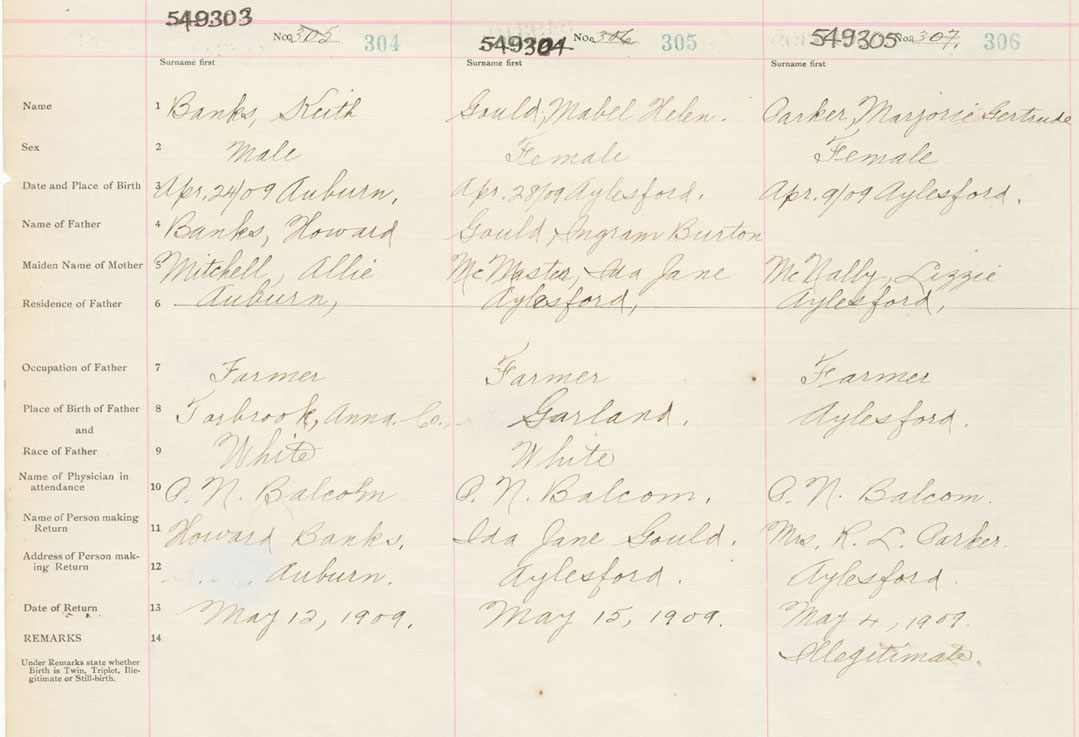 549303 549304 549305
No. 305 304 No. 306 305 No. 307. 306
Surname first Surname first Surname first
Name 1 Banks, Keith Gould, Mabel Helen. Parker, Marjorie Gertrude
Sex 2 Male Female Female
Date and Place of Birth 3 Apr. 24/09 Auburn. Apr. 28/09 Aylesford. Apr. 9/09 Aylesford.
Name of Father 4 Banks, Howard Gould, Ingram Burton
Maiden Name of Mother 5 Mitchell, Allie McMaster, Ida Jane McNally, Lizzie
Residence of Father 6 Auburn, Aylesford, Aylesford,
Occupation of Father 7 Farmer Farmer Farmer
Place of Birth of Father 8 Torbrook, Anna. Co., Garland. Aylesford.
and
Race of Father 9 White White
Name of Physician in
attendance 10 P. N. Balcom P. N. Balcom. P. N. Balcom.
Name of Person making
Return 11 Howard Banks. Ida Jane Gould. Mrs. R. L. Parker.
Address of Person mak-
ing Return 12 Auburn. Aylesford. Aylesford.
Date of Return 13 May 12, 1909. May 15, 1909. May 4, 1909.
REMARKS 14 Illegitimate.
Under Remarks state whether
Birth is Twin, Triplet, Ille-
gitimate or Still-birth.